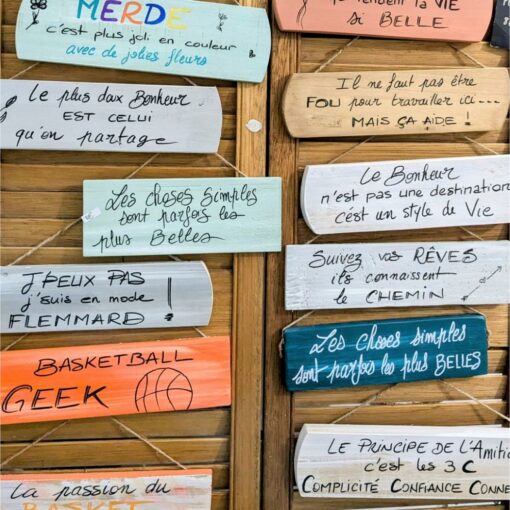 MERDE
c'est plus joli en couleur
avec de jolies fleurs
Le plus daux Bonheur
EST CELUI
qu'on partage
Les choses simples
sont parfois les
plus Belles
J'PEUX PAS
j'suis en mode
FLEMMARD !
BASKETBALL
GEEK
La passion du
BASKET
la VIE
si BELLE
Il ne faut pas être
FOU pour travailler ici...
MAIS ÇA AIDE !
Le Bonheur
n'est pas une destination
c'est un style de Vie
Suivez vos RÊVES
ils connaissent
le CHEMIN
Les choses simples
sont parfois les plus BELLES
LE PRINCIPE DE L'Amitié
c'est les 3 C
COMPLICITÉ CONFIANCE CONNE